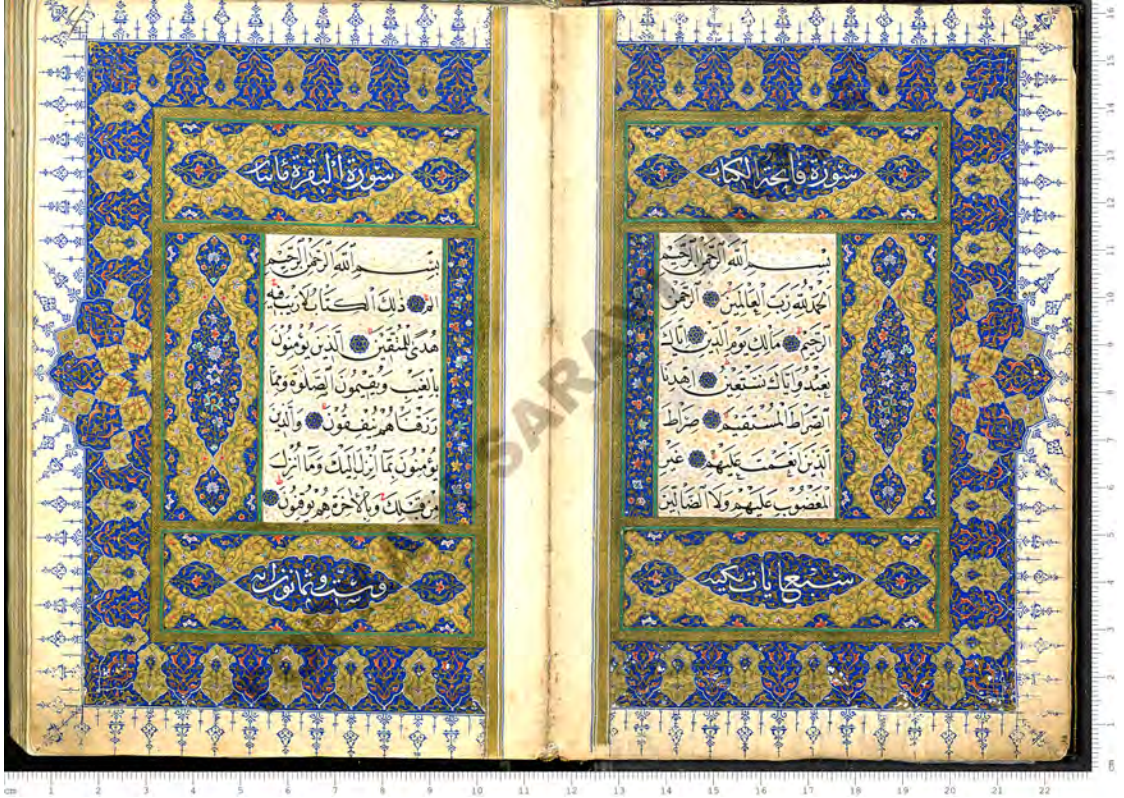 سورة فاتحة الكتاب
بسم الله الرحمن الرحيم
الحمد لله رب العالمين الرحمن
الرحيم مالك يوم الدين اياك
نعبد واياك نستعين اهدنا
الصراط المستقيم صراط
الذين انعمت عليهم غير
المغضوب عليهم ولا الضالين
سبع ايات مكية
سورة البقرة مائتا
بسم الله الرحمن الرحيم
الم ذلك الكتاب لا ريب فيه
هدى للمتقين الذين يؤمنون
بالغيب ويقيمون الصلوة ومما
رزقناهم ينفقون والذين
يؤمنون بما انزل اليك وما انزل
من قبلك وبالاخرة هم يوقنون
وست وثمانون اية
SARAY
cm 1 2 3 4 5 6 7 8 9 10 11 12 13 14 15 16 17 18 19 20 21 22
cm 1 2 3 4 5 6 7 8 9 10 11 12 13 14 15 16